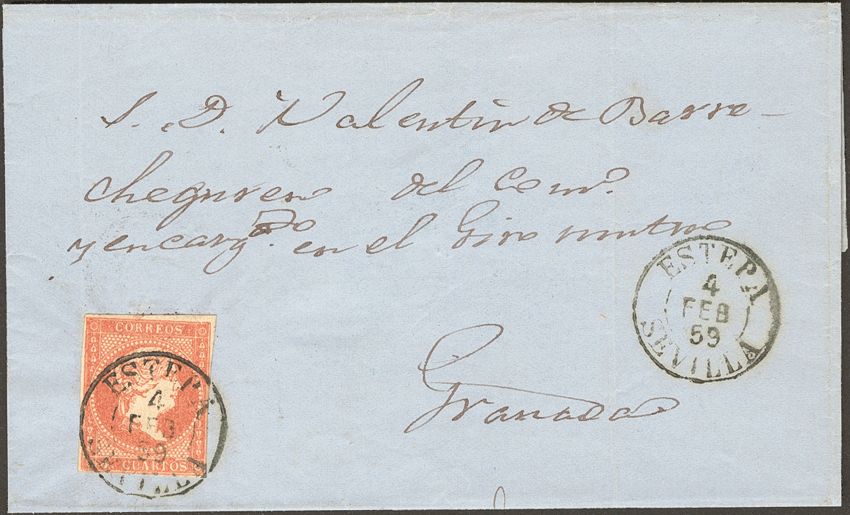 S. D. Valentin de Barre-
cheguren del Comº.
y encargdo en el Giro mutuo
ESTEPA
4
FEB
59
SEVILLA
Granada
CORREOS
ESTEPA
4
FEB
59
SEVILLA
CUARTOS